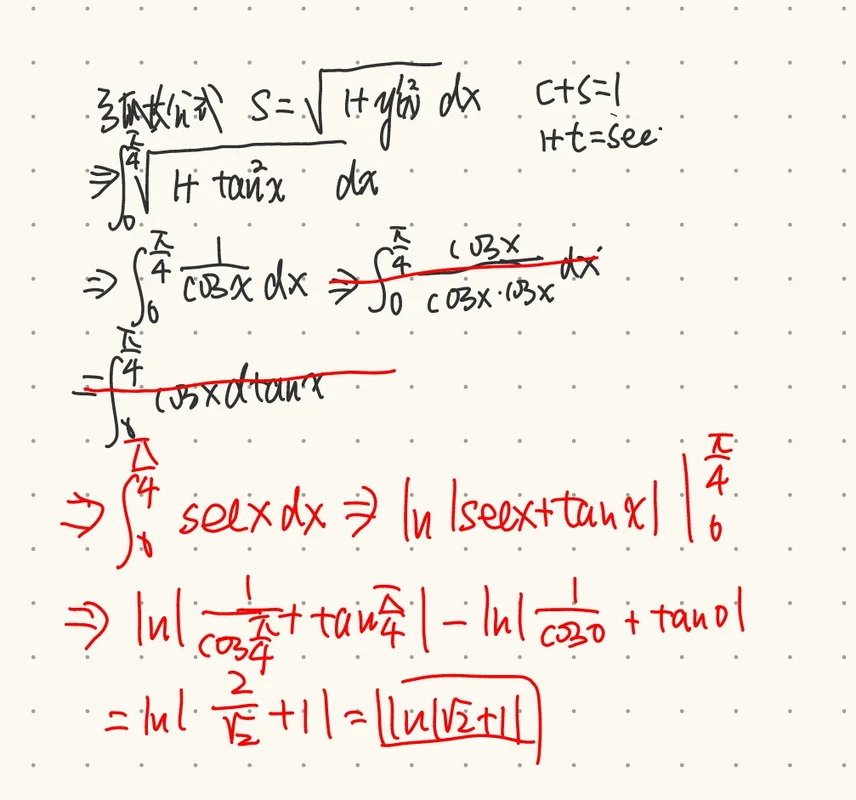 弧长公式 S=√(1+y'²(x)) dx C+S=1
1+t=sec
⇒∫₀^(π/4) √(1+tan²x) dx
⇒∫₀^(π/4) 1/cosx dx ⇒∫₀^(π/4) cosx/(cosx·cosx) dx
=∫₀^(π/4) cosxdtanx
⇒∫₀^(π/4) secxdx ⇒ ln|secx+tanx| |₀^(π/4)
⇒ ln|1/cos(π/4)+tan(π/4)|-ln|1/cos0+tan0|
=ln|2/√2+1|=ln|√2+1|